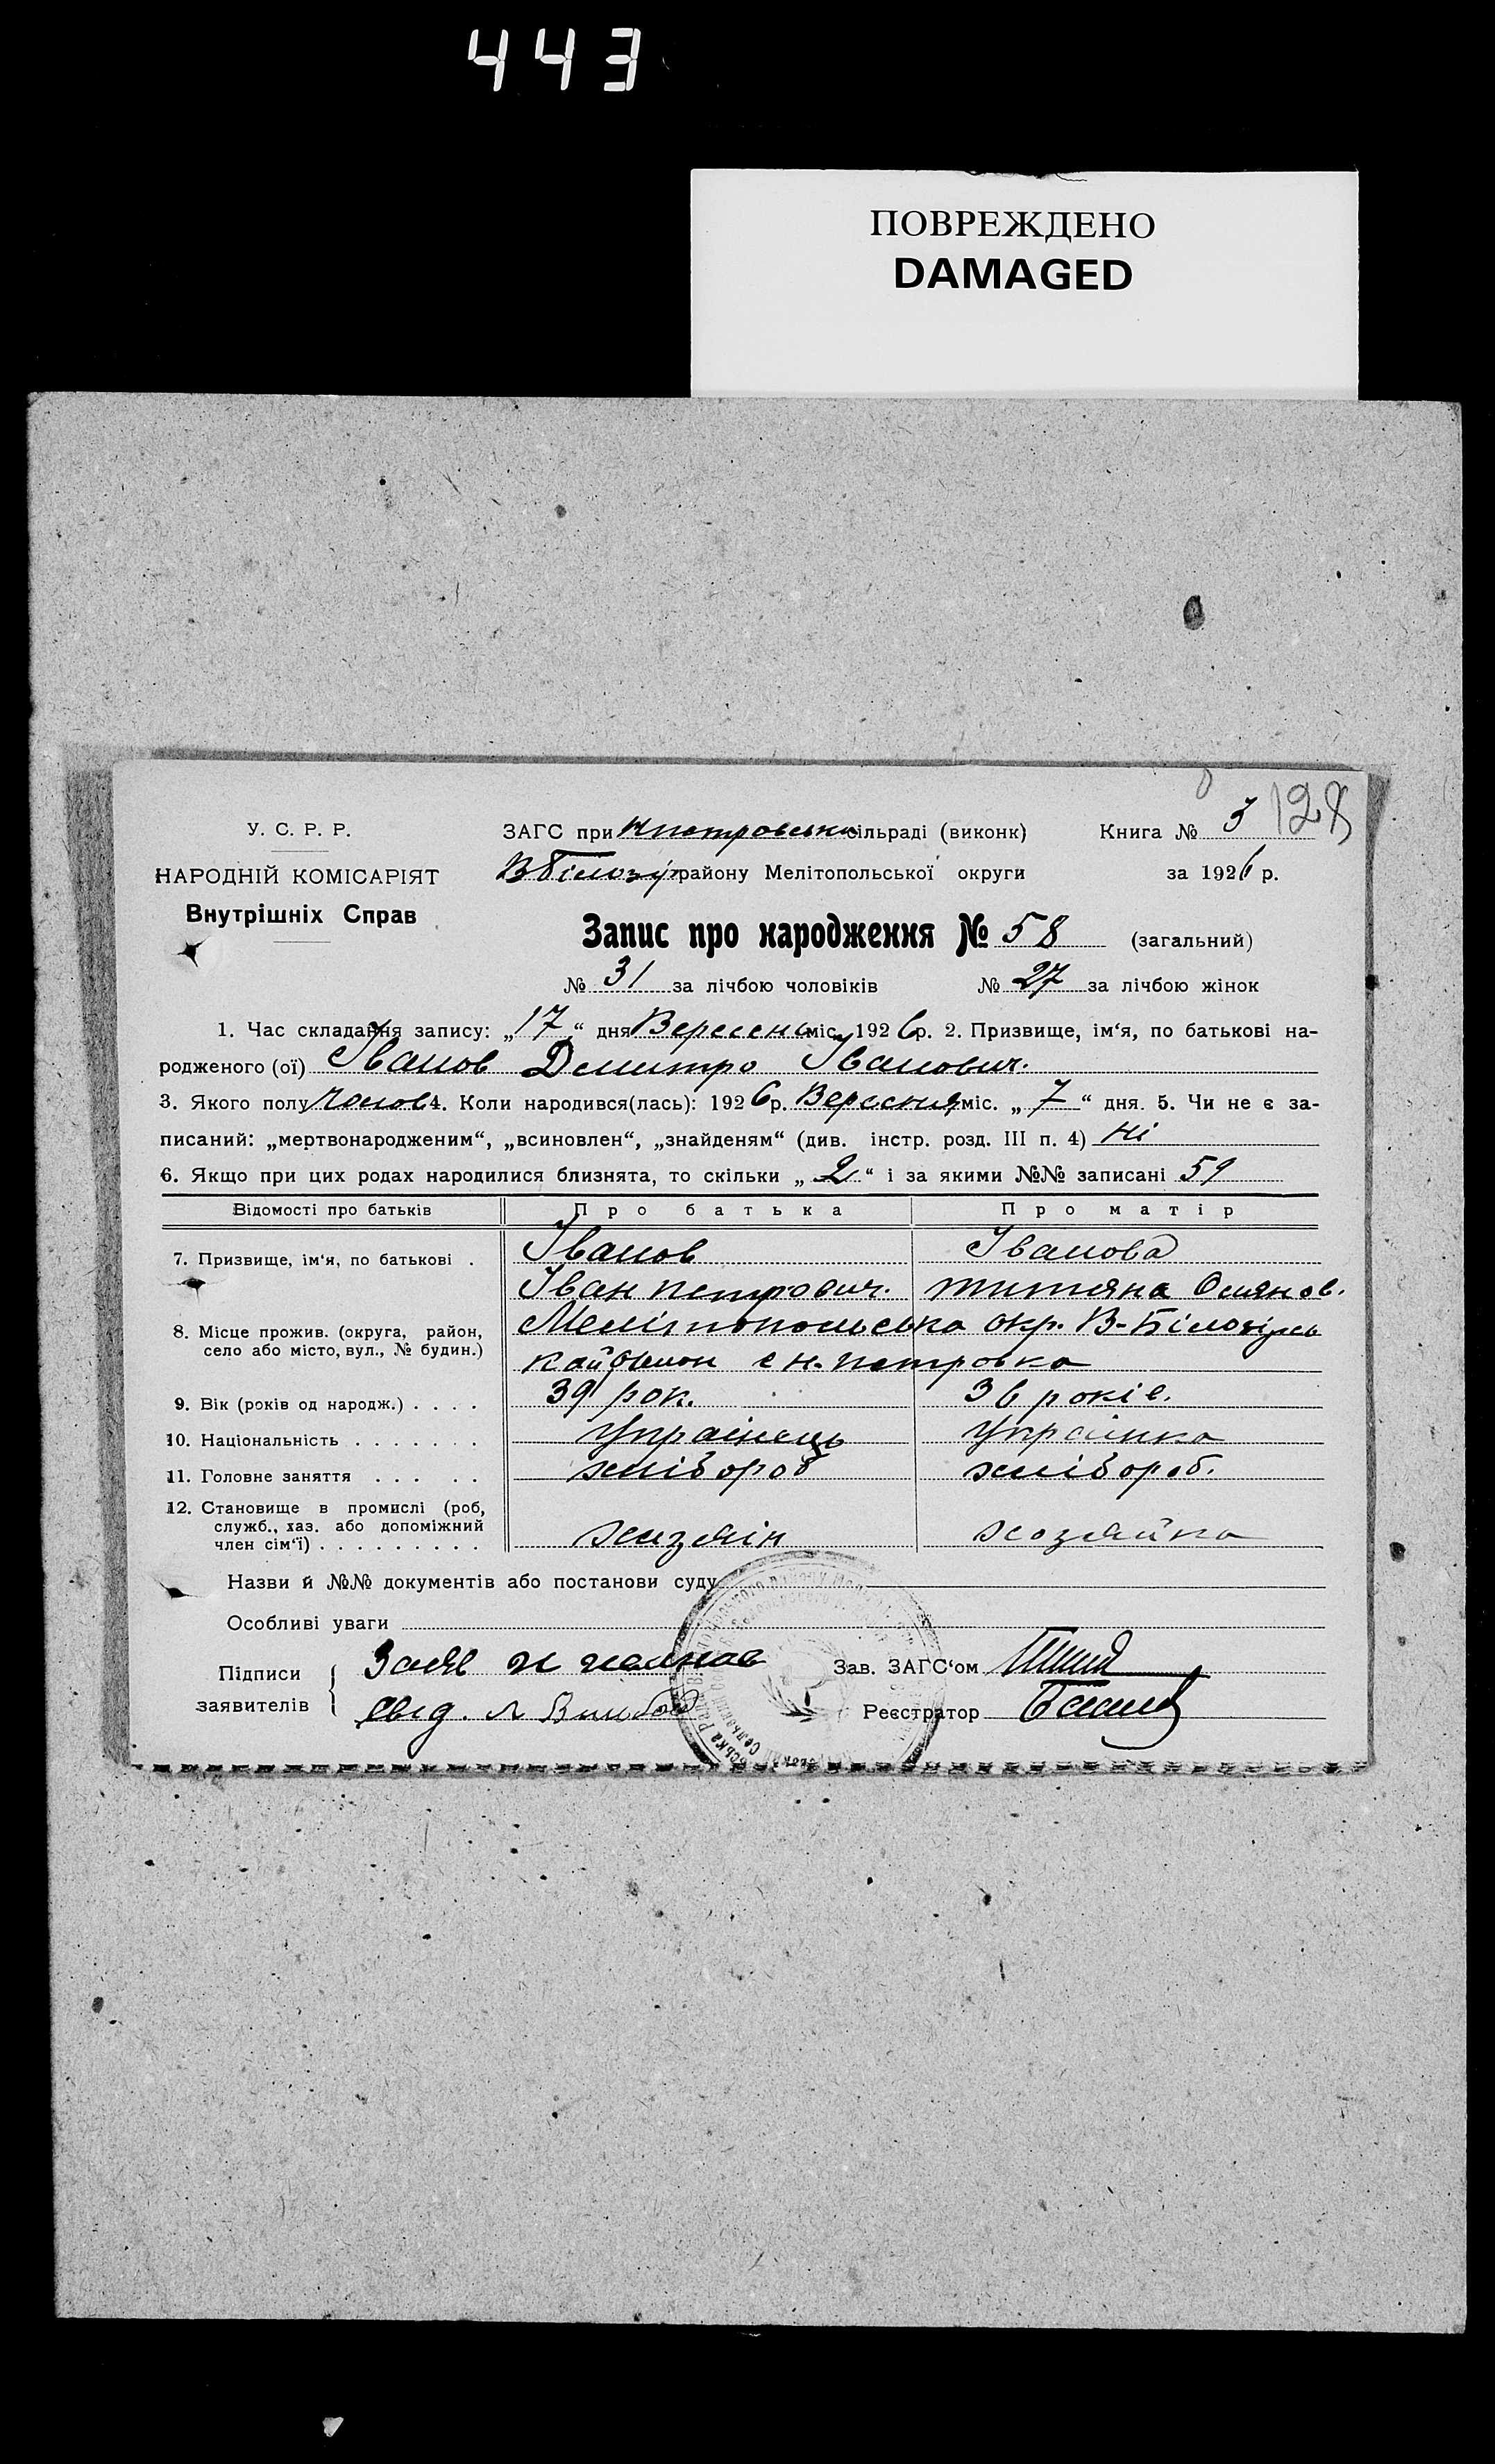 443
ПОВРЕЖДЕНО
DAMAGED
128
У. С. Р. Р.
НАРОДНІЙ КОМІСАРІЯТ
Внутрішніх Справ
ЗАГС при Нпетровськ сільраді (виконк) Книга № 3
ВБілозір району Мелітопольської округи за 1926 р.
Запис про народження № 58 (загальний)
№ 31 за лічбою чоловіків № 27 за лічбою жінок
1. Час складання запису: „17“ дня Вересня міс. 1926 р. 2. Призвище, ім‘я, по батькові на-
родженого (ої) Іванов Дмитро Іванович.
3. Якого полу чолов 4. Коли народився(лась): 1926 р. Вересня міс. „7“ дня. 5. Чи не є за-
писаний: „мертвонародженим“, „всиновлен“, „знайденям“ (див. інстр. розд. III п. 4) Ні
6. Якщо при цих родах народилися близнята, то скільки „2“ і за якими №№ записані 59
Відомості про батьків Про батька Про матір
7. Призвище, ім‘я, по батькові . Іванов Іванова
Іван петрович. титяна
8. Місце прожив. (округа, район, село або місто, вул., № будин.) Мелітопольська окр. В-Білозірсь
район с н. петровка
9. Вік (років од народж.) . . . . 39 рок. 36 років.
10. Національність . . . . . . . Українець Українка
11. Головне заняття . . . . . хлібороб хлібороб.
12. Становище в промислі (роб, служб., хаз. або допоміжний член сім‘ї) . . . . . . . . . хазяін хозяйка
Назви й №№ документів або постанови суду
Особливі уваги
Підписи заявителів
Заяв
свід.
Зав. ЗАГС‘ом
Реєстратор